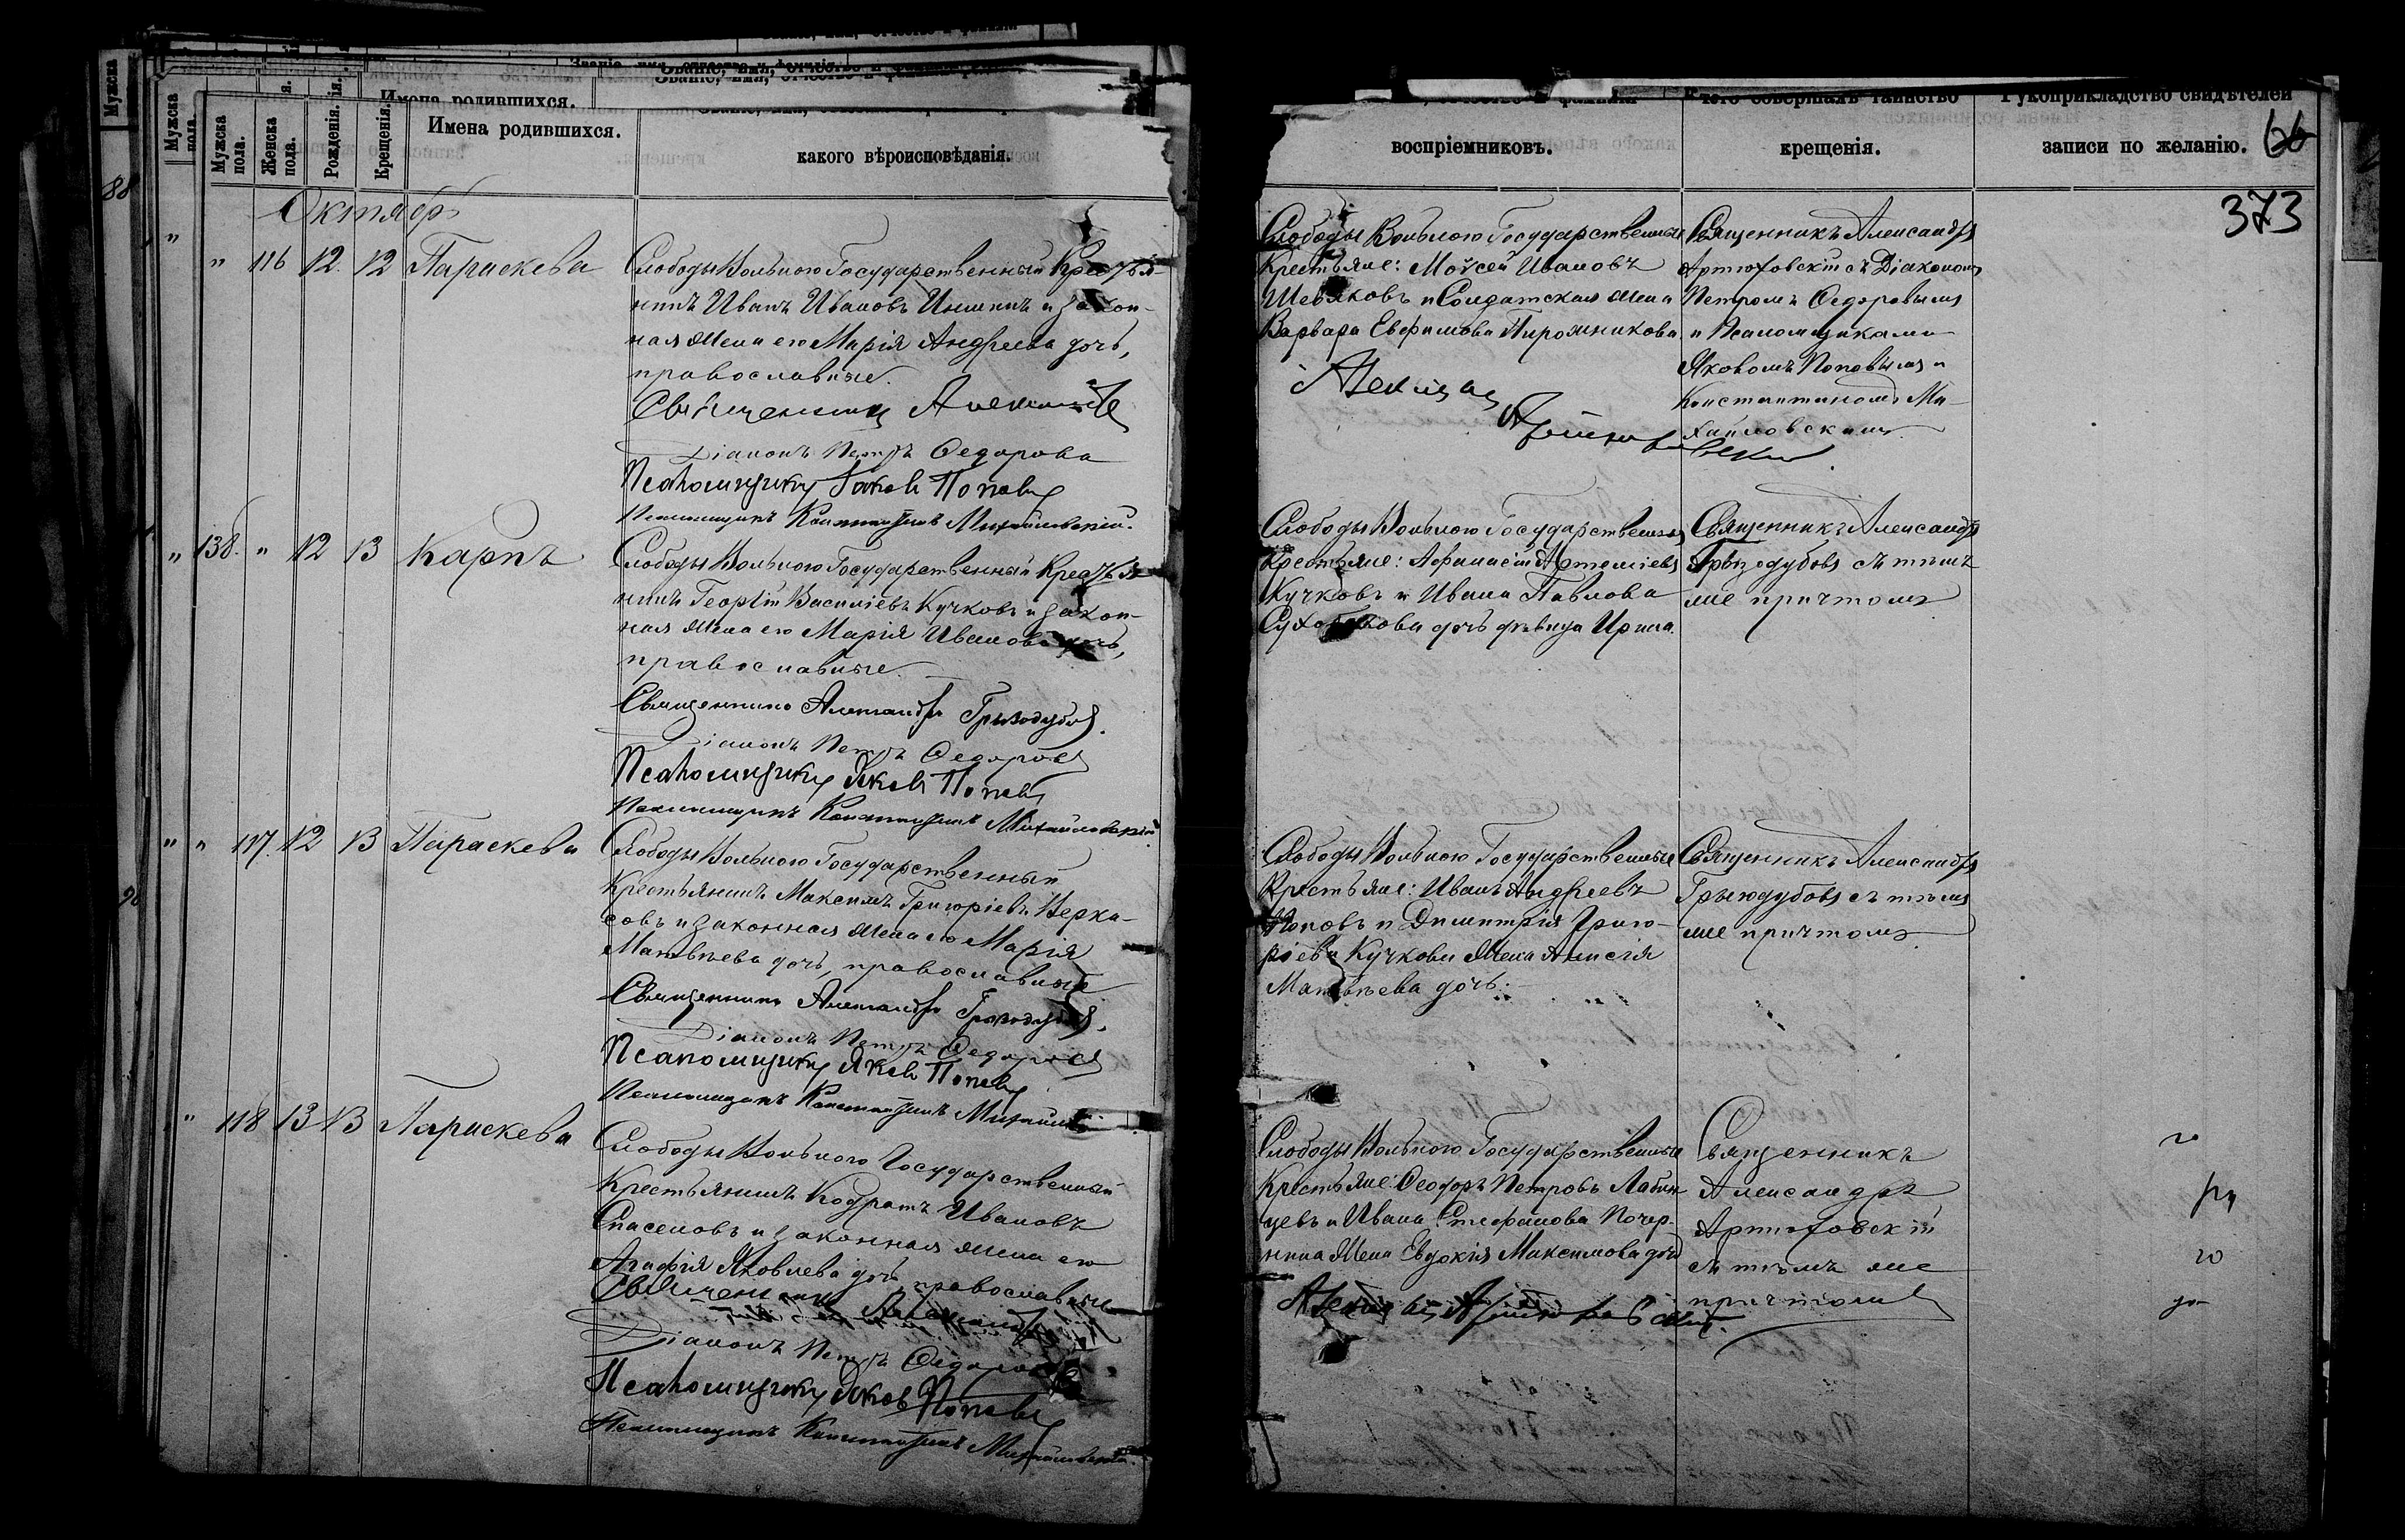 Имена родившихся.
Мужска пола.
Женска пола.
Рожденія.
Крещенія.
Имена родившихся.
какого вѣроисповѣданія.
Октябрь
" 116 12. 12 Параскева
Слободы Вольного Государственный Крестья-
нинъ Иванъ Ивановъ и закон-
ная жена его Марія Андреева дочь,
православные.
Священникъ Александръ
Діаконъ Петръ Федоровъ
Псаломщикъ Яковъ Поповъ
Псаломщикъ Константинъ Михайловскій.
" 138. " 12 13 Карпъ
Слободы Вольного Государственный Крестья-
нинъ Георгій Василіевъ Кучковъ и закон-
ная жена его Марія Иванова дочь,
православные.
Священникъ Александръ Грызодубовъ.
Діаконъ Петръ Федоровъ
Псаломщикъ Яковъ Поповъ
Псаломщикъ Константинъ Михайловскій.
" " 117. 12 13 Параскева
Слободы Вольного Государственный
Крестьянинъ Максимъ Григоріевъ Черка-
совъ и законная жена его Марія
Матвѣева дочь, православные
Священникъ Александръ Грызодубовъ.
Діаконъ Петръ Федоровъ
Псаломщикъ Яковъ Поповъ
Псаломщикъ Константинъ
" 118 13 13 Параскева
Слободы Вольного Государственный
Крестьянинъ Кодратъ Ивановъ
Спасеновъ и законная жена его
Агафія Яковлева дочь, православные
Священникъ Александръ
Діаконъ Петръ Федоровъ
Псаломщикъ Яковъ Поповъ
Псаломщикъ Константинъ Михайловскій.
воспріемниковъ.
крещенія.
записи по желанію.
66
373
Слободы Вольного Государственные
Крестьяне: Мойсей Ивановъ
Шевяковъ и Солдатская жена
Варвара Евфимова Пирожникова
Александръ
Артюховскій.
Священникъ Александръ
Артюховскій съ Діакономъ
Петромъ Федоровымъ
и Псаломщиками
Яковомъ Поповымъ и
Константиномъ Ми-
хайловскимъ.
Слободы Вольного Государственные
Крестьяне: Афанасій Артеміевъ
Кучковъ и Ивана Павлова
дочь дѣвица Ирина.
Священникъ Александръ
Грызодубовъ съ тѣмъ
же причтомъ
Слободы Вольного Государственные
Крестьяне: Иванъ Андреевъ
Поповъ и Димитрія Григо-
ріева Кучкова жена Анисія
Матвѣева дочь.
Священникъ Александръ
Грызодубовъ съ тѣмъ
же причтомъ.
Слободы Вольного Государственные
Крестьяне: Феодоръ Петровъ Лабин-
цевъ и Ивана Стефанова
жена Евдокія Максимова дочь
Александръ Артюховскій.
Священникъ
Александръ
Артюховскій
съ тѣмъ же
причтомъ